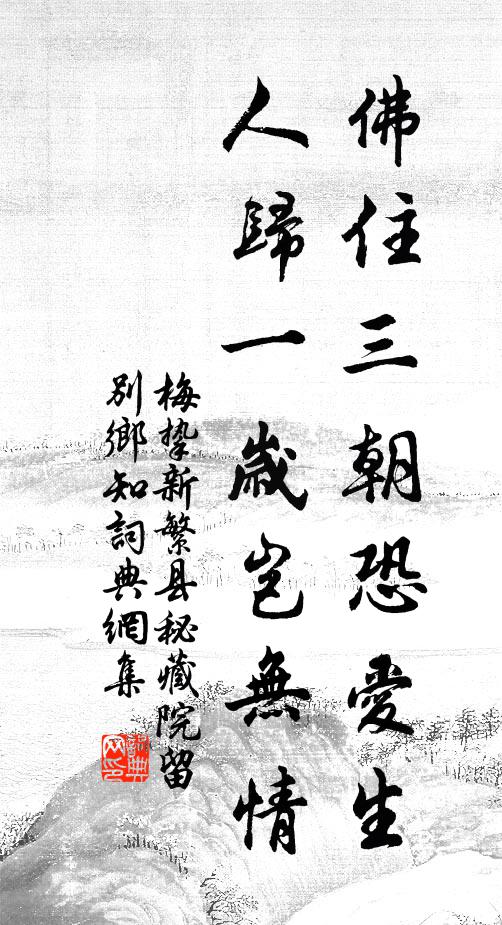 佛住三朝恐愛生
人歸一歲豈無情
梅挚新繁县秘藏院留
別鄉知詞典網集
詞典
网印